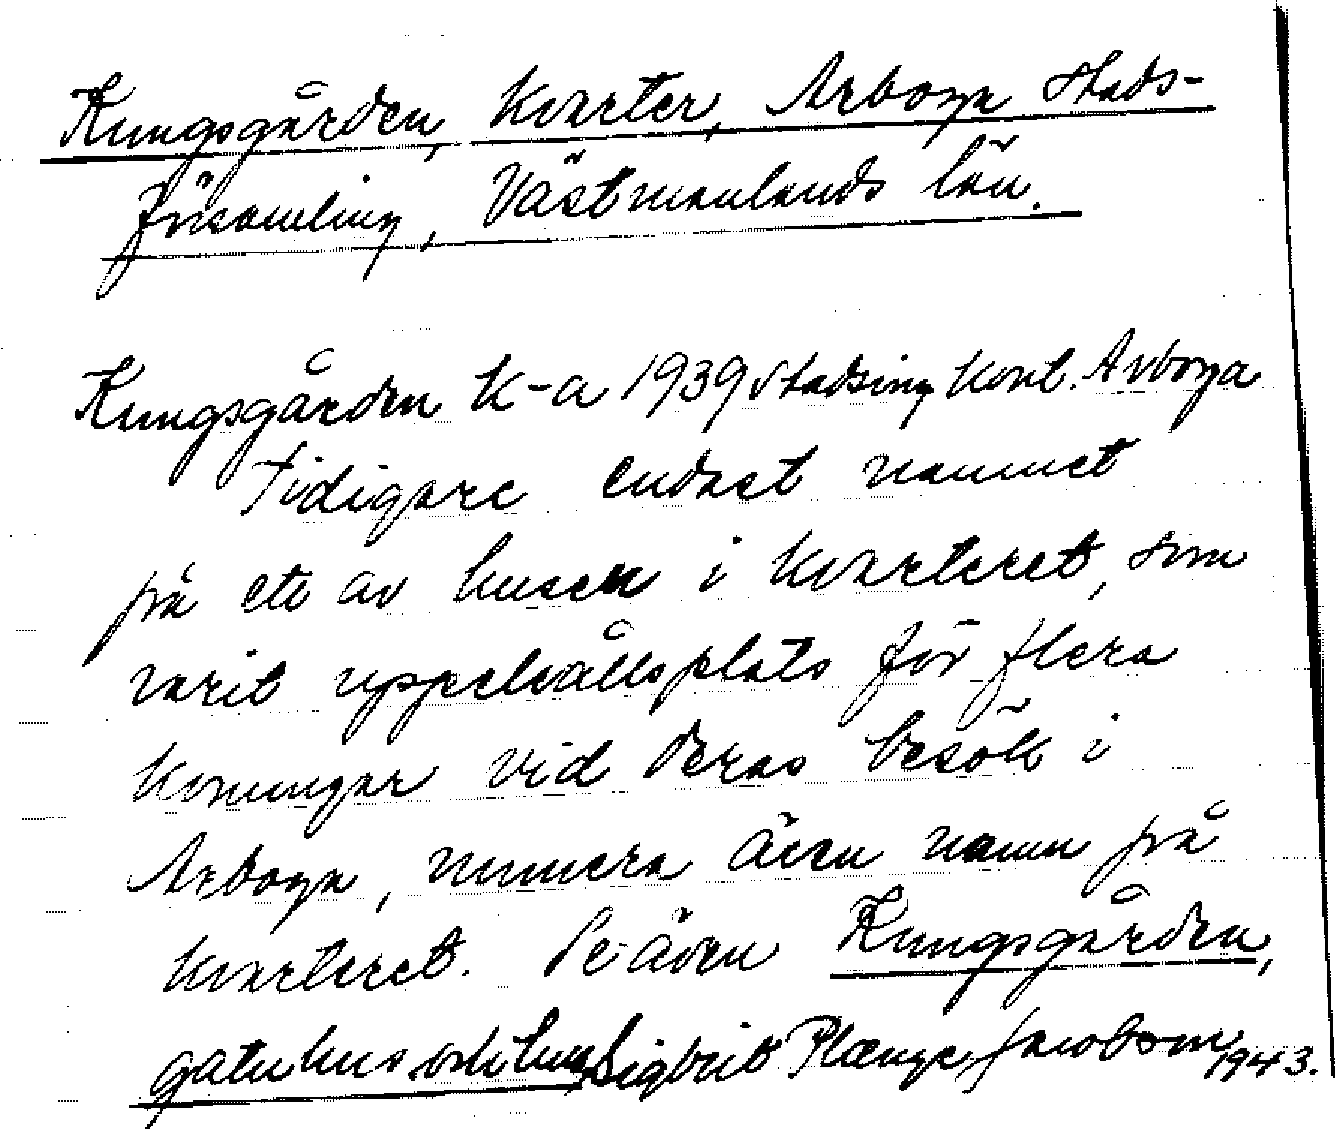 Kungsgården, kvarter, Arboga stads-
församling, Västmanlands län.
Kungsgården K-a 1939 Stadsing kont. Arboga
Tidigare endast namnet
på ett av husen i kvarteret, som
varit uppehållsplats för flera
konungar vid deras besök i
Arboga, numera även namn på
kvarteret. Se även Kungsgården,
gatuhus och Sigbrit Plænge Jacobson 1943.